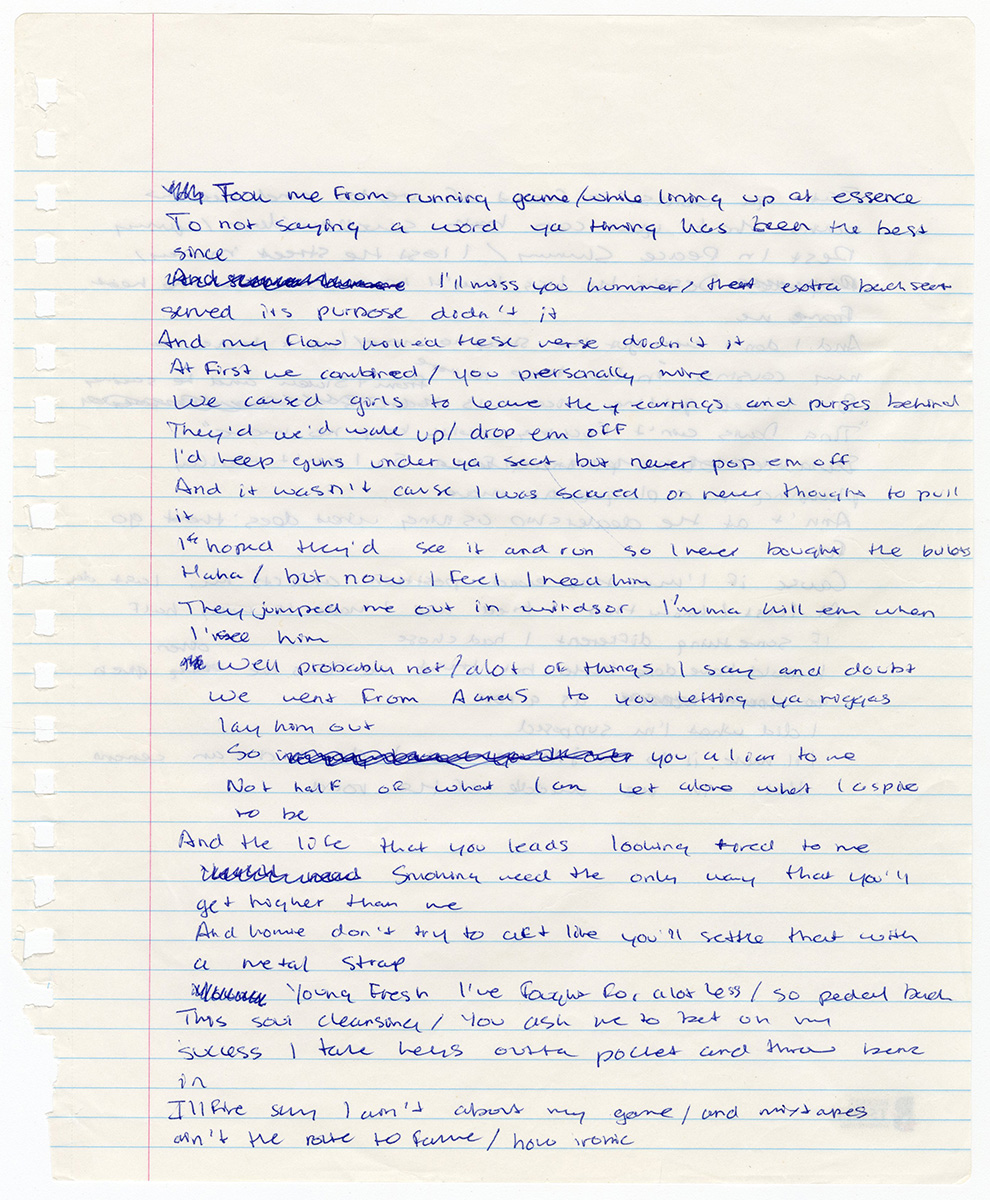 Took me From running game/while lining up at essence
To not saying a word ya timing has been the best
since
I'll miss you hummer/ that extra backseat
served its purpose didn't it
And my flow these verse didn't it
At First we combined/ you prersonally more
We caused girls to leave they earrings and purses behind
They'd we'd wake up/ drop em off
I'd keep guns under ya seat but never pop em off
And it wasn't cause I was scared or never thought to pull
it
I hoped they'd see it and run so I never bought the bullets
Haha/ but now I feel I need him
They jumped me out in windsor I'mma kill em when
I see him
Well probably not/alot of things I say and doubt
We went From AandS to you letting ya niggas
lay him out
So you a liar to me
Not half of what I am let alone what I aspire
to be
And the life that you leads looking tired to me
Smoking weed the only way that you'll
get higher than me
And homie don't try to act like you'll settle that with
a metal strap
Young Fresh I've fought for alot less/ so pedal back
This soul cleansing/ You ask me to bet on my
success I take keys outta pocket and throw benz
in
I'll fire say I ain't about my game/ and mixtapes
ain't the route to fame/ how ironic